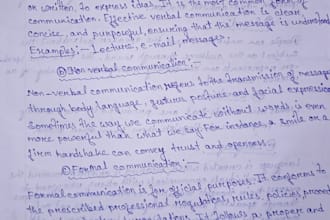 or written, to express ideas. It is the most common form of
communication. Effective verbal communication is clear
concise, and purposeful, ensuring that the message is understood
Examples:- Lecture, e-mail, messages.
② Non verbal communication:-
Non-verbal communication refers to the transmission of message
through body language, gesture posture and facial expression
Sometimes the way we communicate without words, is even
more powerful than what we say. For instance, a smile or a
firm handshake can convey trust and openness.
③ Formal communication:-
Formal communication is for official purposes. It conforms to
the prescribed professional regulations, rules, policies,
It follows a proper and